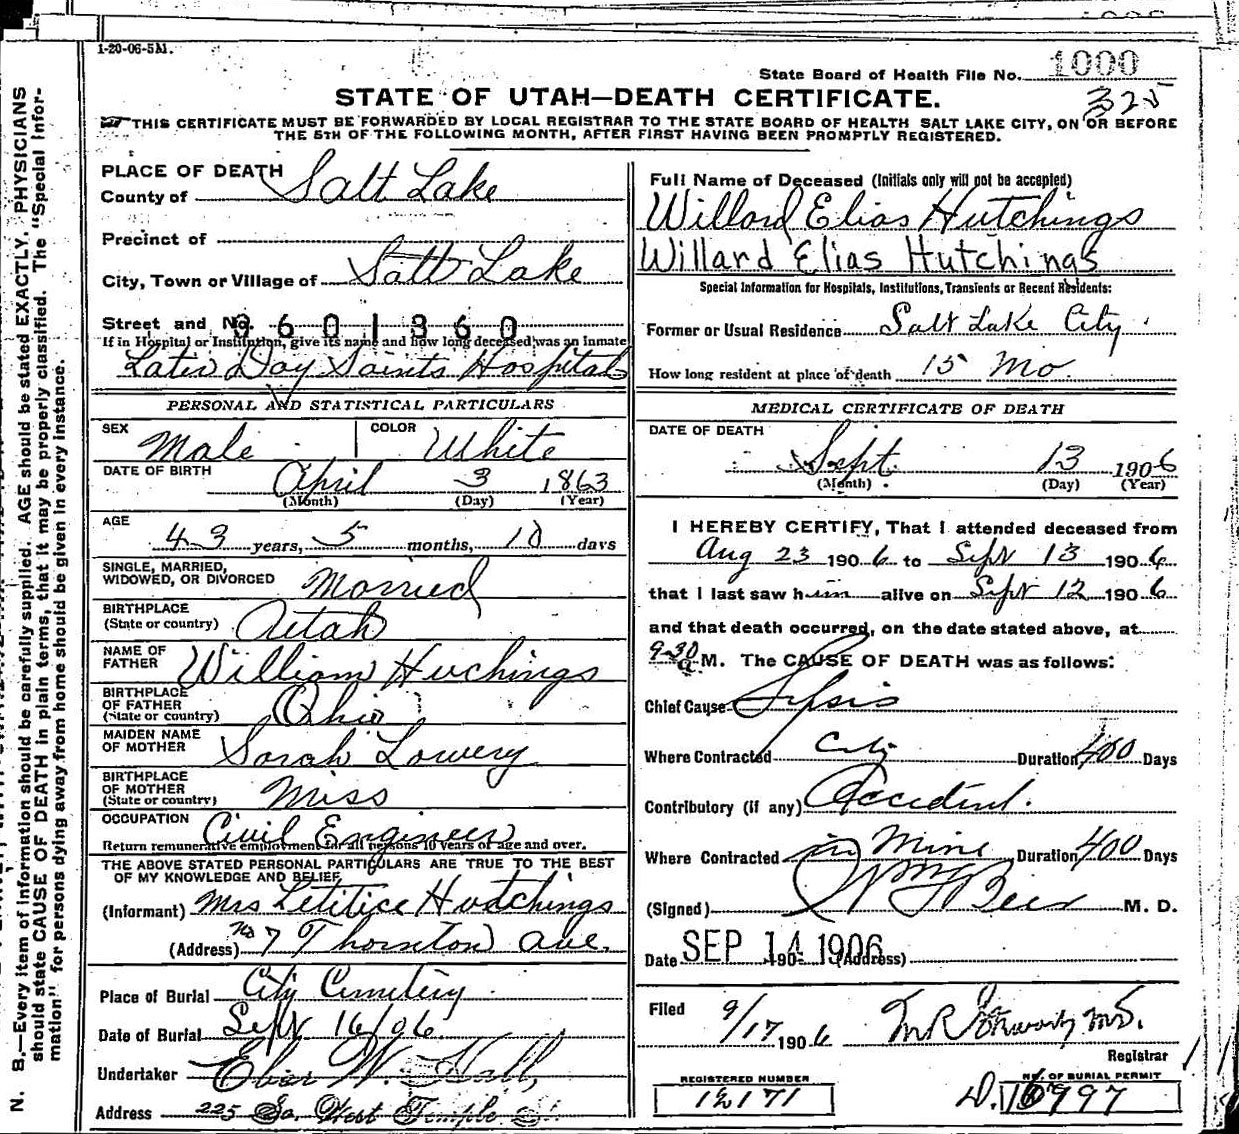 1-20-06-5M.
State Board of Health File No. 1000
325
STATE OF UTAH—DEATH CERTIFICATE.
THIS CERTIFICATE MUST BE FORWARDED BY LOCAL REGISTRAR TO THE STATE BOARD OF HEALTH SALT LAKE CITY, ON OR BEFORE
THE 5TH OF THE FOLLOWING MONTH, AFTER FIRST HAVING BEEN PROMPTLY REGISTERED.
N. B.—Every item of information should be carefully supplied. AGE should be stated EXACTLY. PHYSICIANS
should state CAUSE OF DEATH in plain terms, that it may be properly classified. The "Special Infor-
mation" for persons dying away from home should be given in every instance.
PLACE OF DEATH
County of Salt Lake
Precinct of
City, Town or Village of Salt Lake
Street and No. 3601360
If in Hospital or Institution, give its name and how long deceased was an inmate
Later Day Saints Hospital
PERSONAL AND STATISTICAL PARTICULARS
SEX Male COLOR White
DATE OF BIRTH April 3 1863
(Month) (Day) (Year)
AGE 43 years, 5 months, 10 days
SINGLE, MARRIED,
WIDOWED, OR DIVORCED Married
BIRTHPLACE
(State or country) Utah
NAME OF
FATHER William Huchings
BIRTHPLACE
OF FATHER
(State or country) Ohio
MAIDEN NAME
OF MOTHER Sarah Lowery
BIRTHPLACE
OF MOTHER
(State or country) Miss
OCCUPATION Civil Engineer
Return remunerative employment for all persons 10 years of age and over.
THE ABOVE STATED PERSONAL PARTICULARS ARE TRUE TO THE BEST
OF MY KNOWLEDGE AND BELIEF
(Informant) Mrs Letitice Hutchings
(Address) No 7 Thornton ave.
Place of Burial City Cemetery
Date of Burial Sept 16/06
Undertaker Eber W. Hall,
Address 225 So. West Temple St.
Full Name of Deceased (Initials only will not be accepted)
Willard Elias Hutchings
Willard Elias Hutchings
Special Information for Hospitals, Institutions, Transients or Recent Residents:
Former or Usual Residence Salt Lake City
How long resident at place of death 15 Mo.
MEDICAL CERTIFICATE OF DEATH
DATE OF DEATH
Sept. 13 1906
(Month) (Day) (Year)
I HEREBY CERTIFY, That I attended deceased from
Aug 23 1906 to Sept 13 1906
that I last saw him alive on Sept 12 1906
and that death occurred, on the date stated above, at
9-30 a M. The CAUSE OF DEATH was as follows:
Chief Cause Sepsis
Where Contracted City Duration 400 Days
Contributory (if any) Accident.
Where Contracted in Mine Duration 400 Days
(Signed) M. D.
Date SEP 14 1906 190 (Address)
Filed 9/17 1906
Registrar
REGISTERED NUMBER
12171
NO. OF BURIAL PERMIT
D. 16997